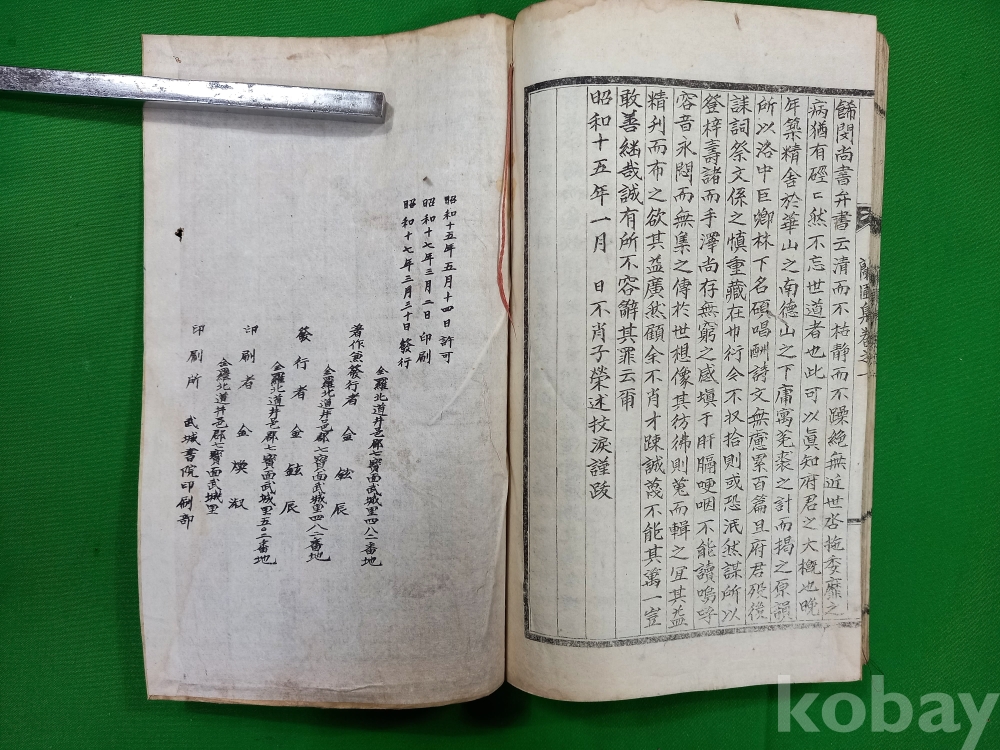 餙閔尚書弁書云淸而不枯静而不躁絶無近世呰拖委靡之
病猶有硜〻然不忘世道者也此可以眞知府君之大槪也晩
年築精舍於華山之南德山之下庸寓菟裘之計而揭之原韻
所以洛中巨卿林下名碩唱酬詩文無慮累百篇且府君歿後
誄詞祭文係之愼重藏在卄衍今不収拾則或恐泯然謀所以
登梓壽諸而手澤尚存無窮之感塡于肝膈哽咽不能讀嗚呼
容音永閟而無集之傳於世想像其彷彿則蒐而輯之宜其益
精刋而布之欲其益廣然顧余不肖才踈誠蔑不能其萬一豈
敢善継哉誠有所不容辭其罪云爾
昭和十五年一月 日不肖子榮述抆淚謹跋
集卷之一
昭和十五年五月十四日許可
昭和十七年三月二日印刷
昭和十七年三月三十日發行
全羅北道井邑郡七寶面武城里四八二番地
著作兼發行者 金鉉辰
全羅北道井邑郡七寶面武城里四八二番地
發行者 金鉉辰
全羅北道井邑郡七寶面武城里五〇三番地
印刷者 金煐淑
全羅北道井邑郡七寶面武城里
印刷所 武城書院印刷部
kobay